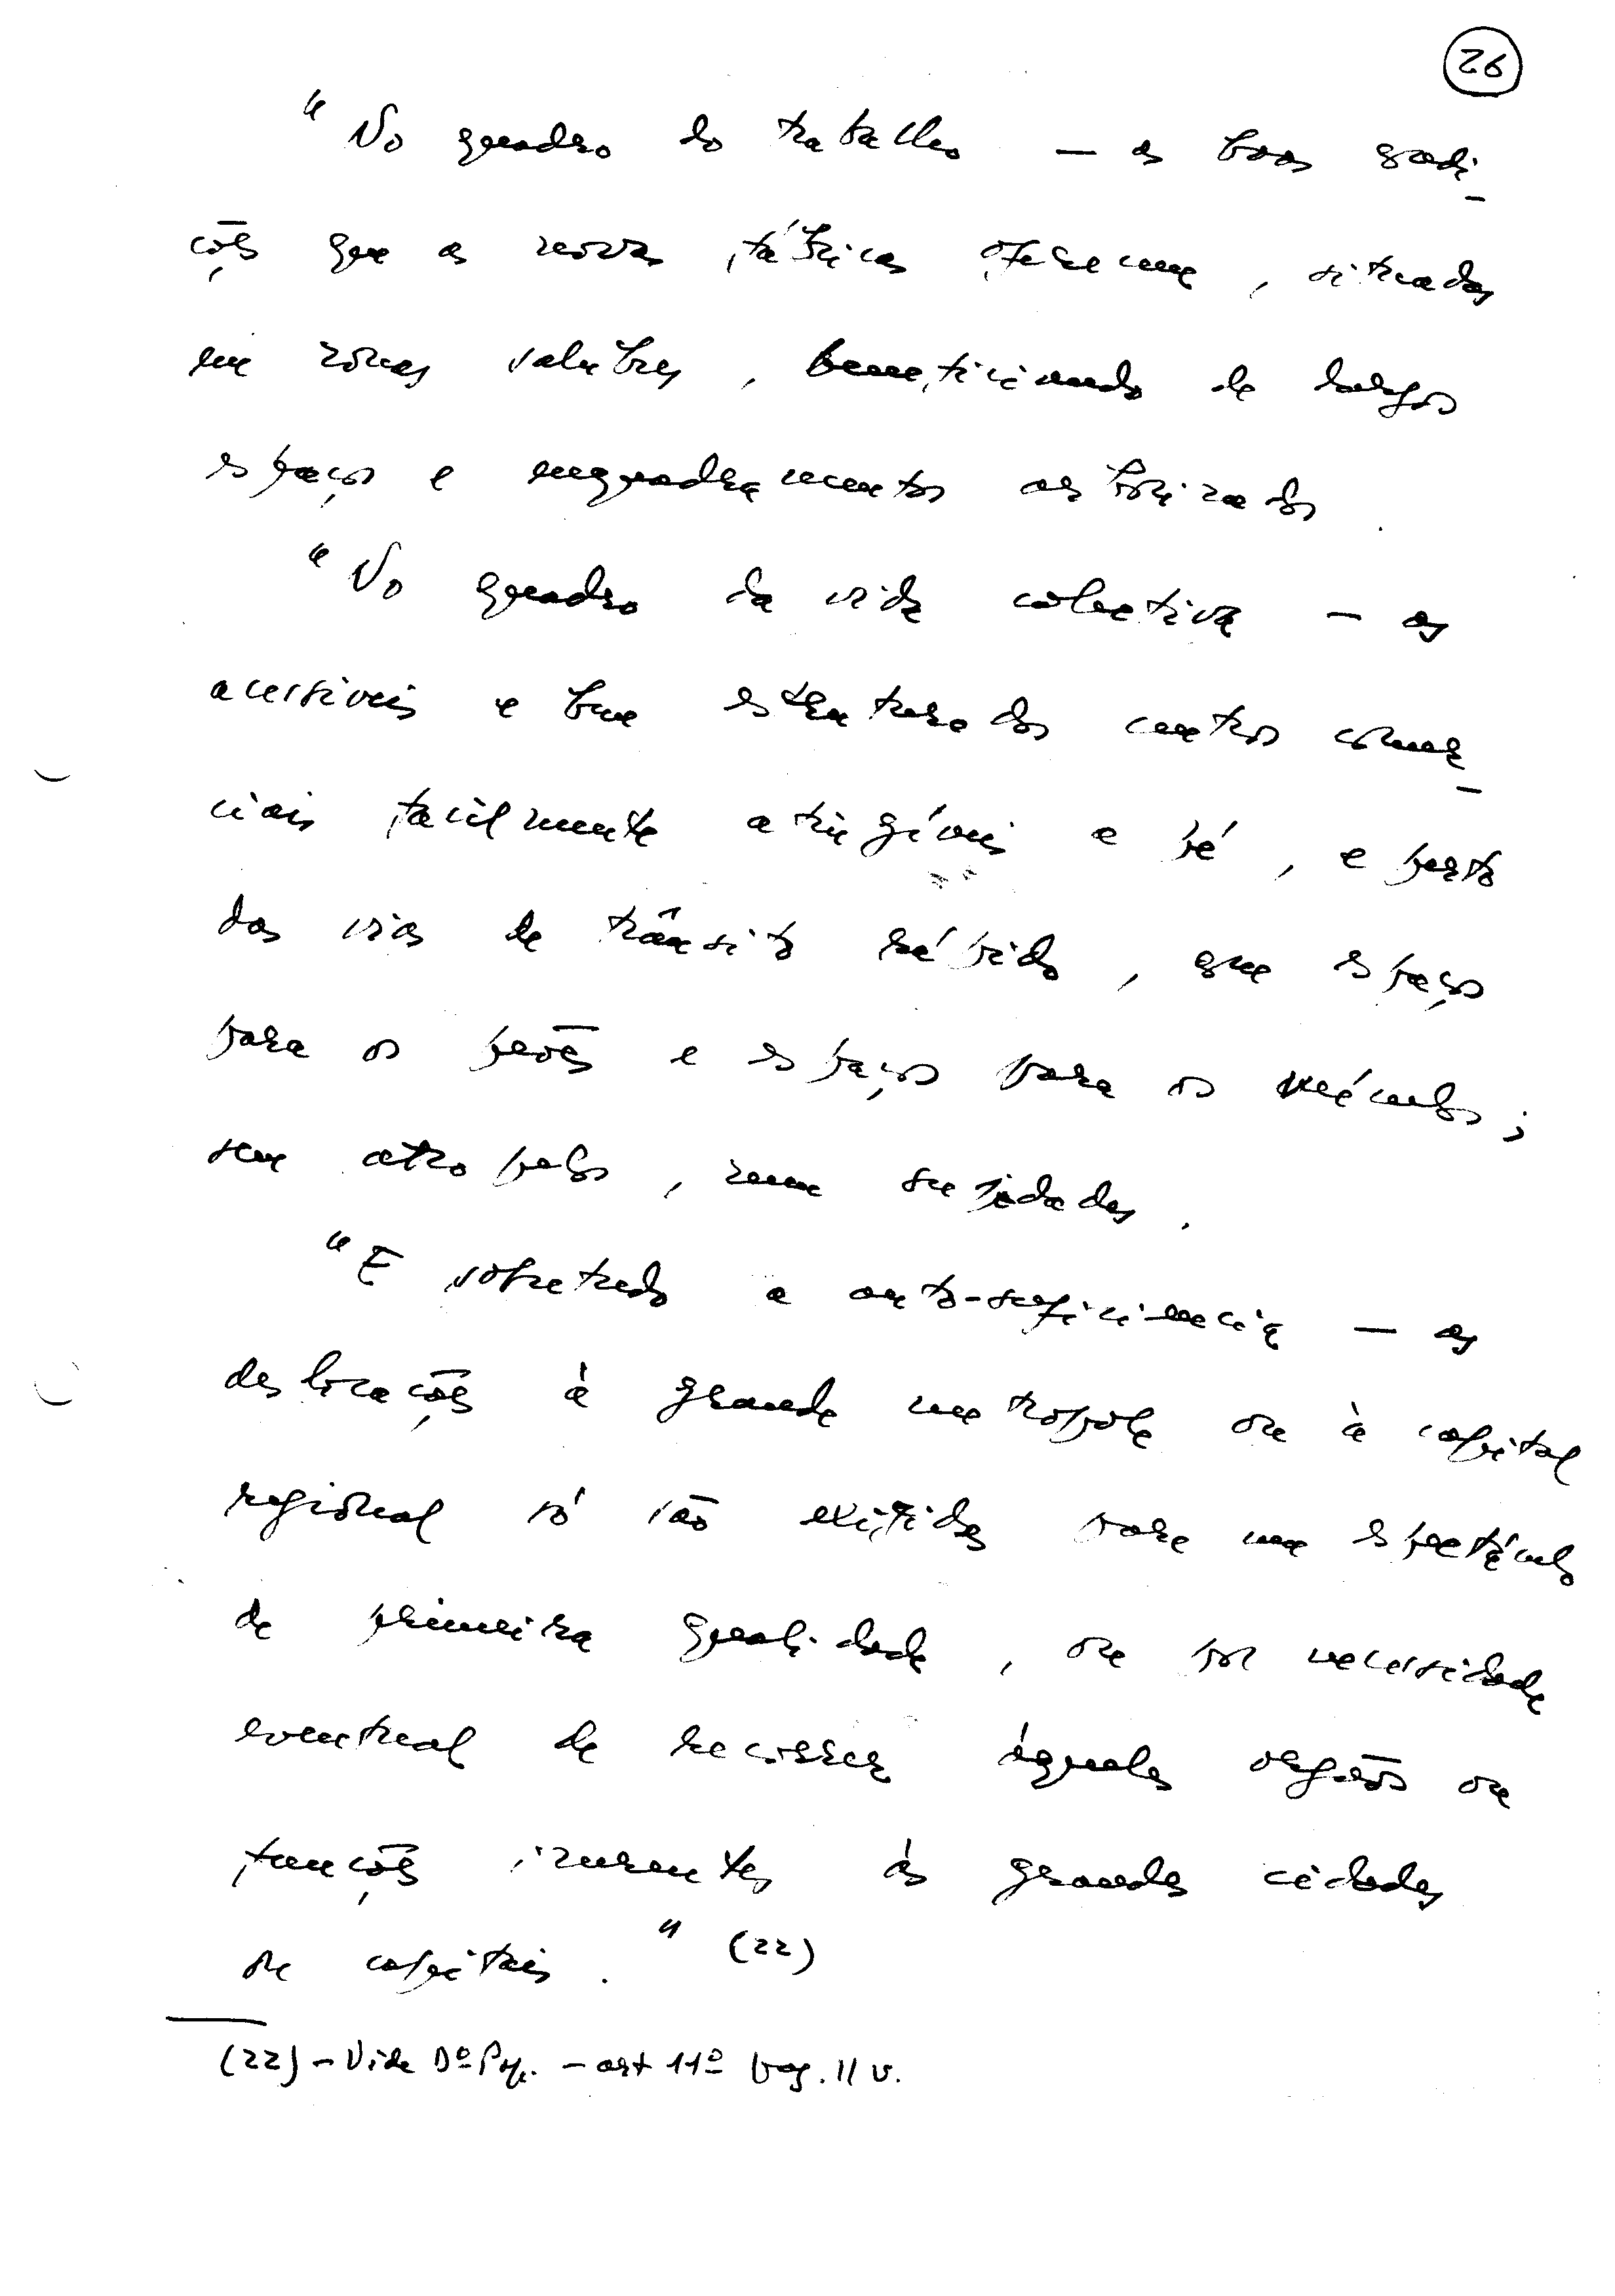 26
"No quadro do trabalho — as boas condi-
ções que as novas fábricas oferecem, situadas
em zonas salubres, beneficiando de largos
espaços e enquadramentos arborizados.
"No quadro da vida colectiva — os
acessíveis e bem estruturados centros comer-
ciais facilmente atingíveis a pé, e perto
das vias de trânsito rápido, que espaço
para os peões e espaço para os veículos;
sem atropelos, nem sujidades.
"E sobretudo a auto-suficiência — as
deslocações à grande metropole ou à capital
regional só são exigidas para um espectáculo
de primeira qualidade, ou por necessidade
eventual de recorrer àqueles orgãos ou
funções inerentes às grandes cidades
ou capitais." (22)
(22) - Vide Dº Pop. - art 11º pag. 11 v.